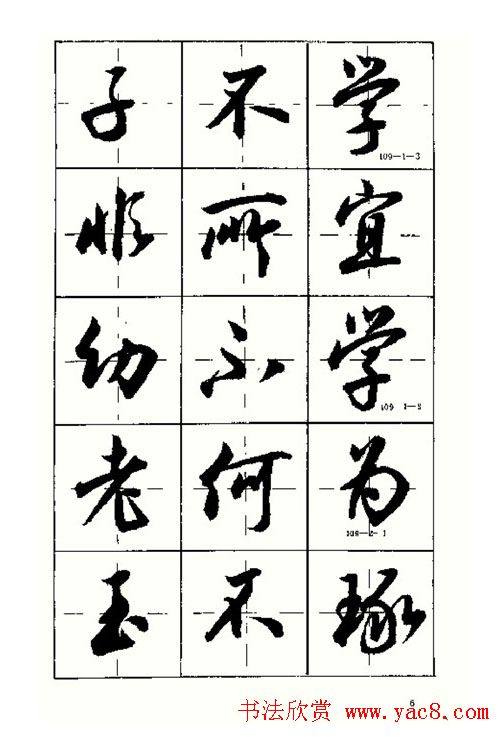 子不学
109—1—3
非所宜
幼不学
老何为
玉不琢
6
书法欣赏 www.yac8.com